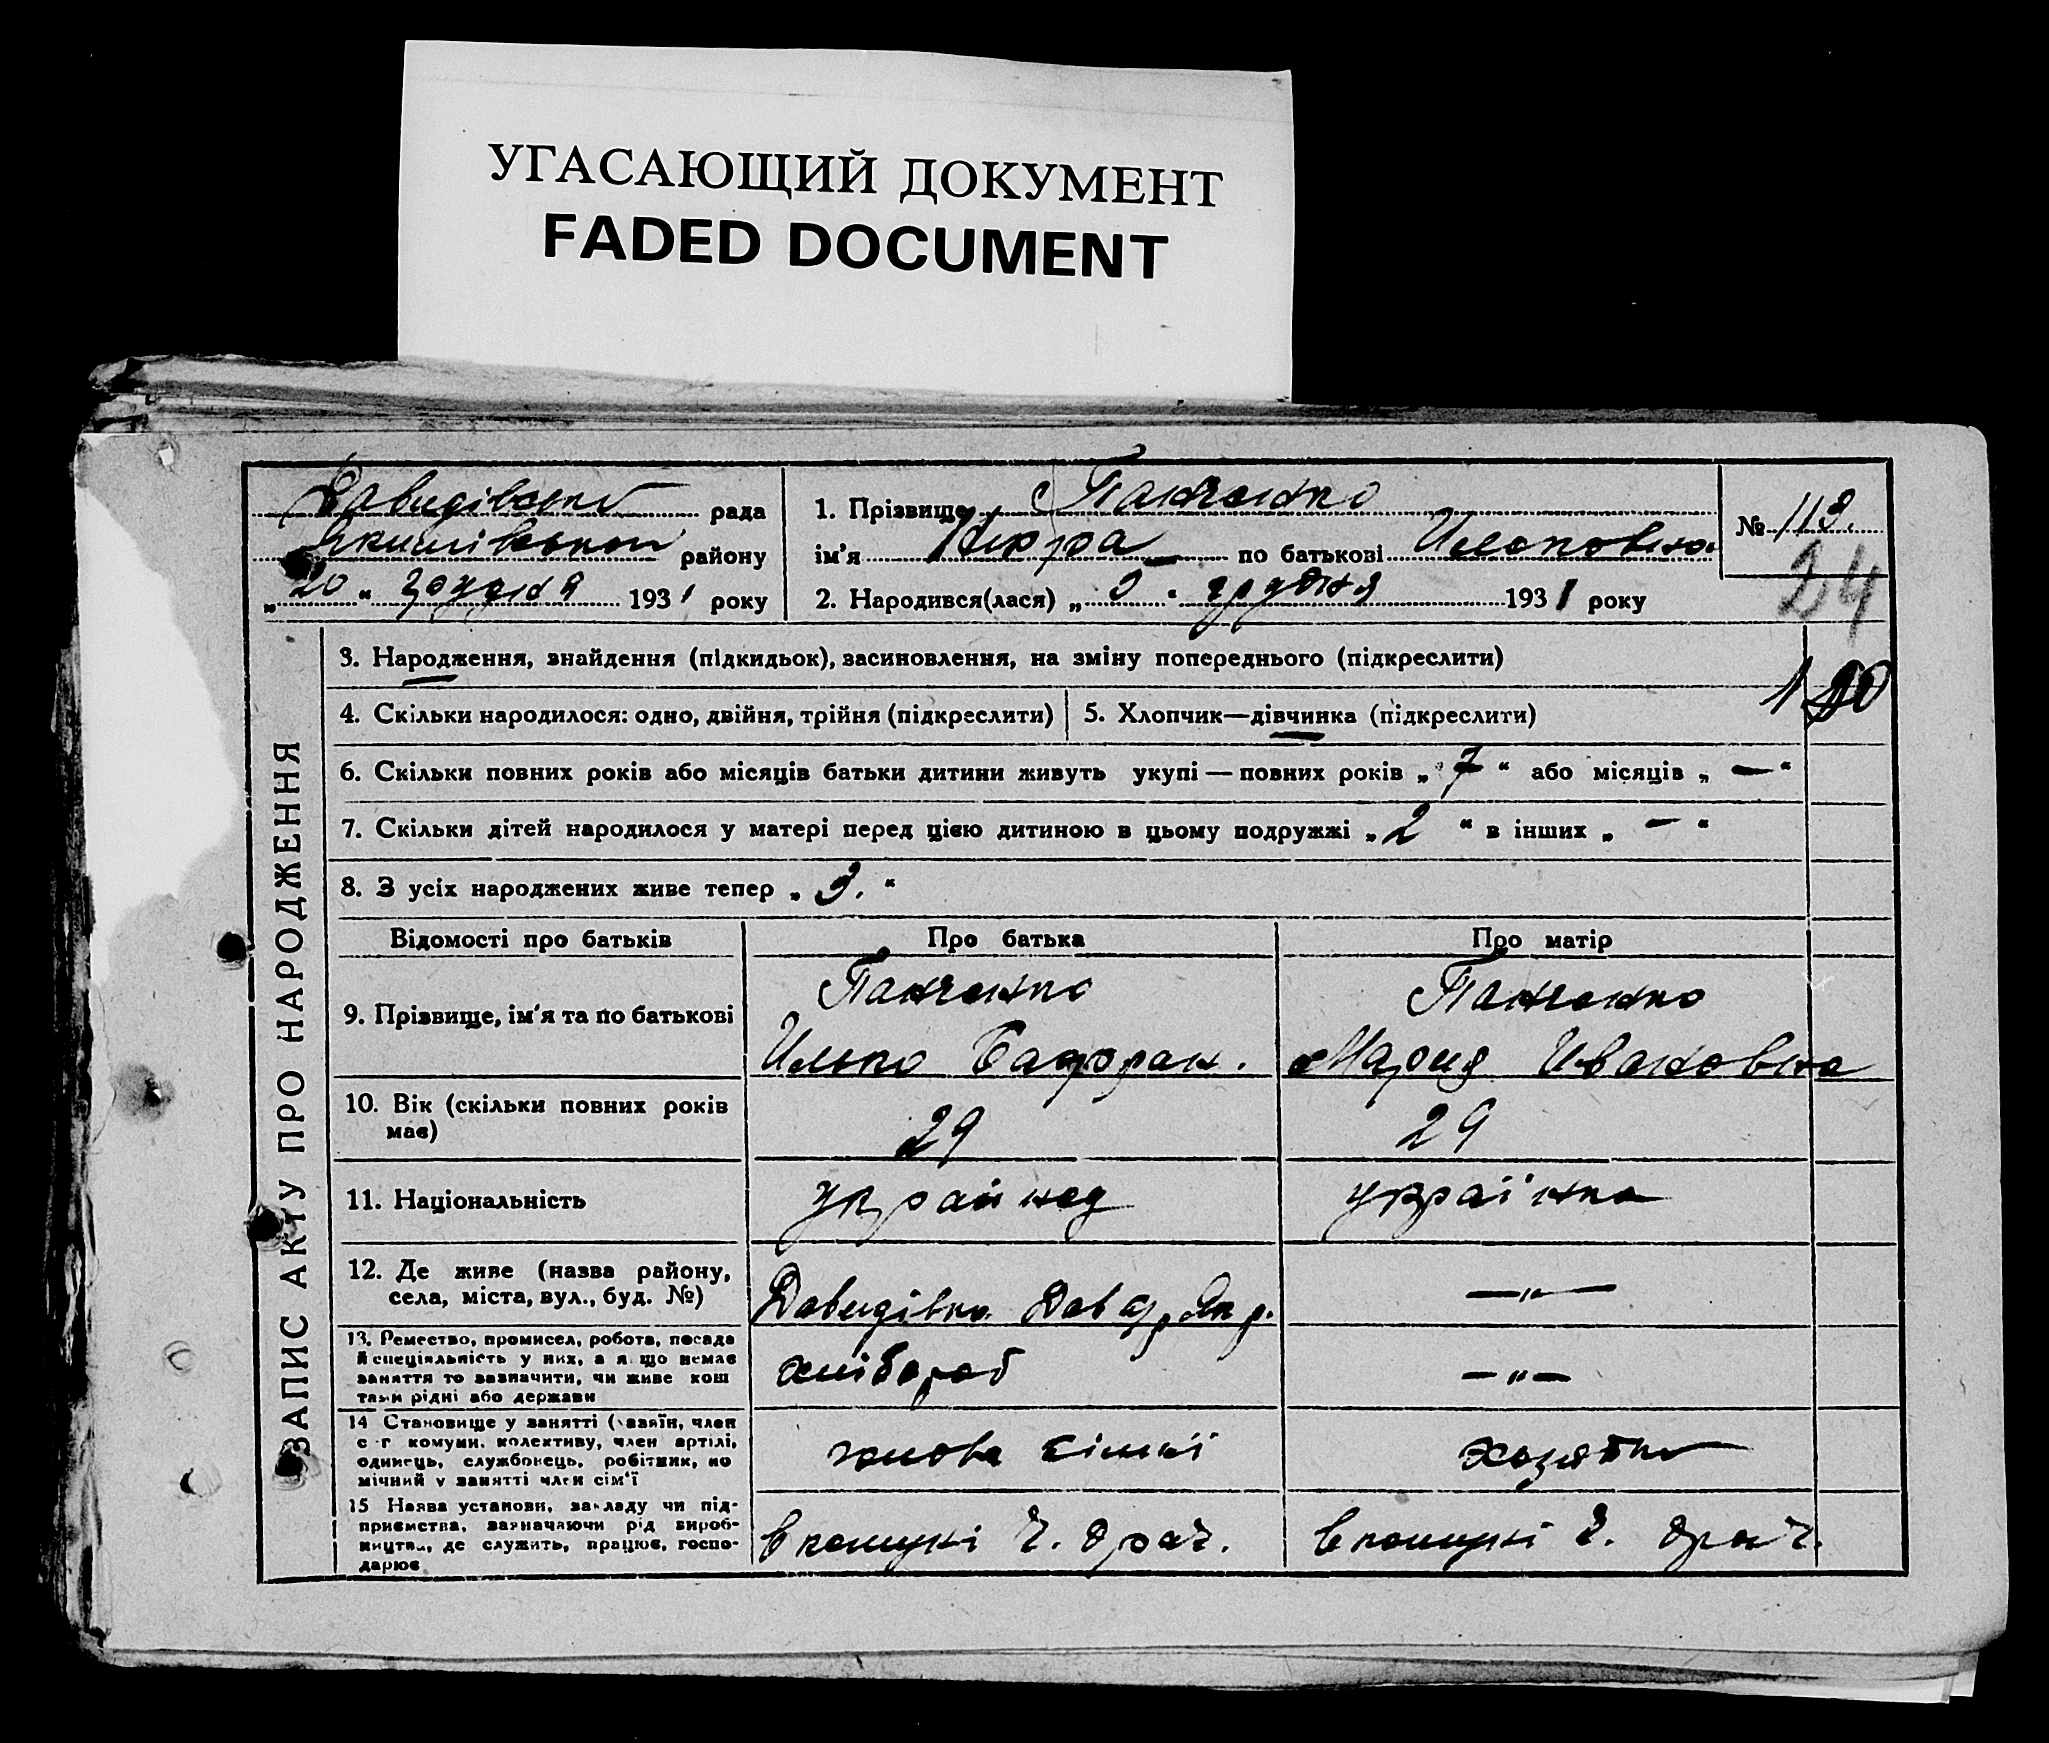 УГАСАЮЩИЙ ДОКУМЕНТ
FADED DOCUMENT
Давидівської рада
Якимівського району
„20“ грудня 1931 року
1. Прізвище Панченко
ім'я по батькові Ильковна
2. Народився(лася) „5“ грудня 1931 року
№ 113.
24
3. Народження, знайдення (підкидьок), засиновлення, на зміну попереднього (підкреслити)
4. Скільки народилося: одно, двійня, трійня (підкреслити)
5. Хлопчик—дівчинка (підкреслити)
6. Скільки повних років або місяців батьки дитини живуть укупі — повних років „7“ або місяців „—“
7. Скільки дітей народилося у матері перед цією дитиною в цьому подружжі „2“ в інших „—“
8. З усіх народжених живе тепер „3.“
ЗАПИС АКТУ ПРО НАРОДЖЕННЯ
Відомості про батьків
Про батька
Про матір
9. Прізвище, ім'я та по батькові
Панченко
Илько
Панченко
Мария Ивановна
10. Вік (скільки повних років
має)
29
29
11. Національність
українец
українка
12. Де живе (назва району,
села, міста, вул., буд. №)
Давидівка Дав с/р Як р.
—„—
13. Ремество, промисел, робота, посада
й спеціяльність у них, а якщо немає
заняття то зазначити, чи живе кош
тами рідні або держави
хлібороб
—„—
14 Становище у занятті (хазяїн, член
с-г комуни, колективу, член артілі,
одинець, службовець, робітник, по
мічний у занятті член сім'ї
хозяйка
15 Назва установи, закладу чи під-
приємства, зазначаючи рід вироб-
ництва, де служить, працює, госпо-
дарює
в комуні
в комуні